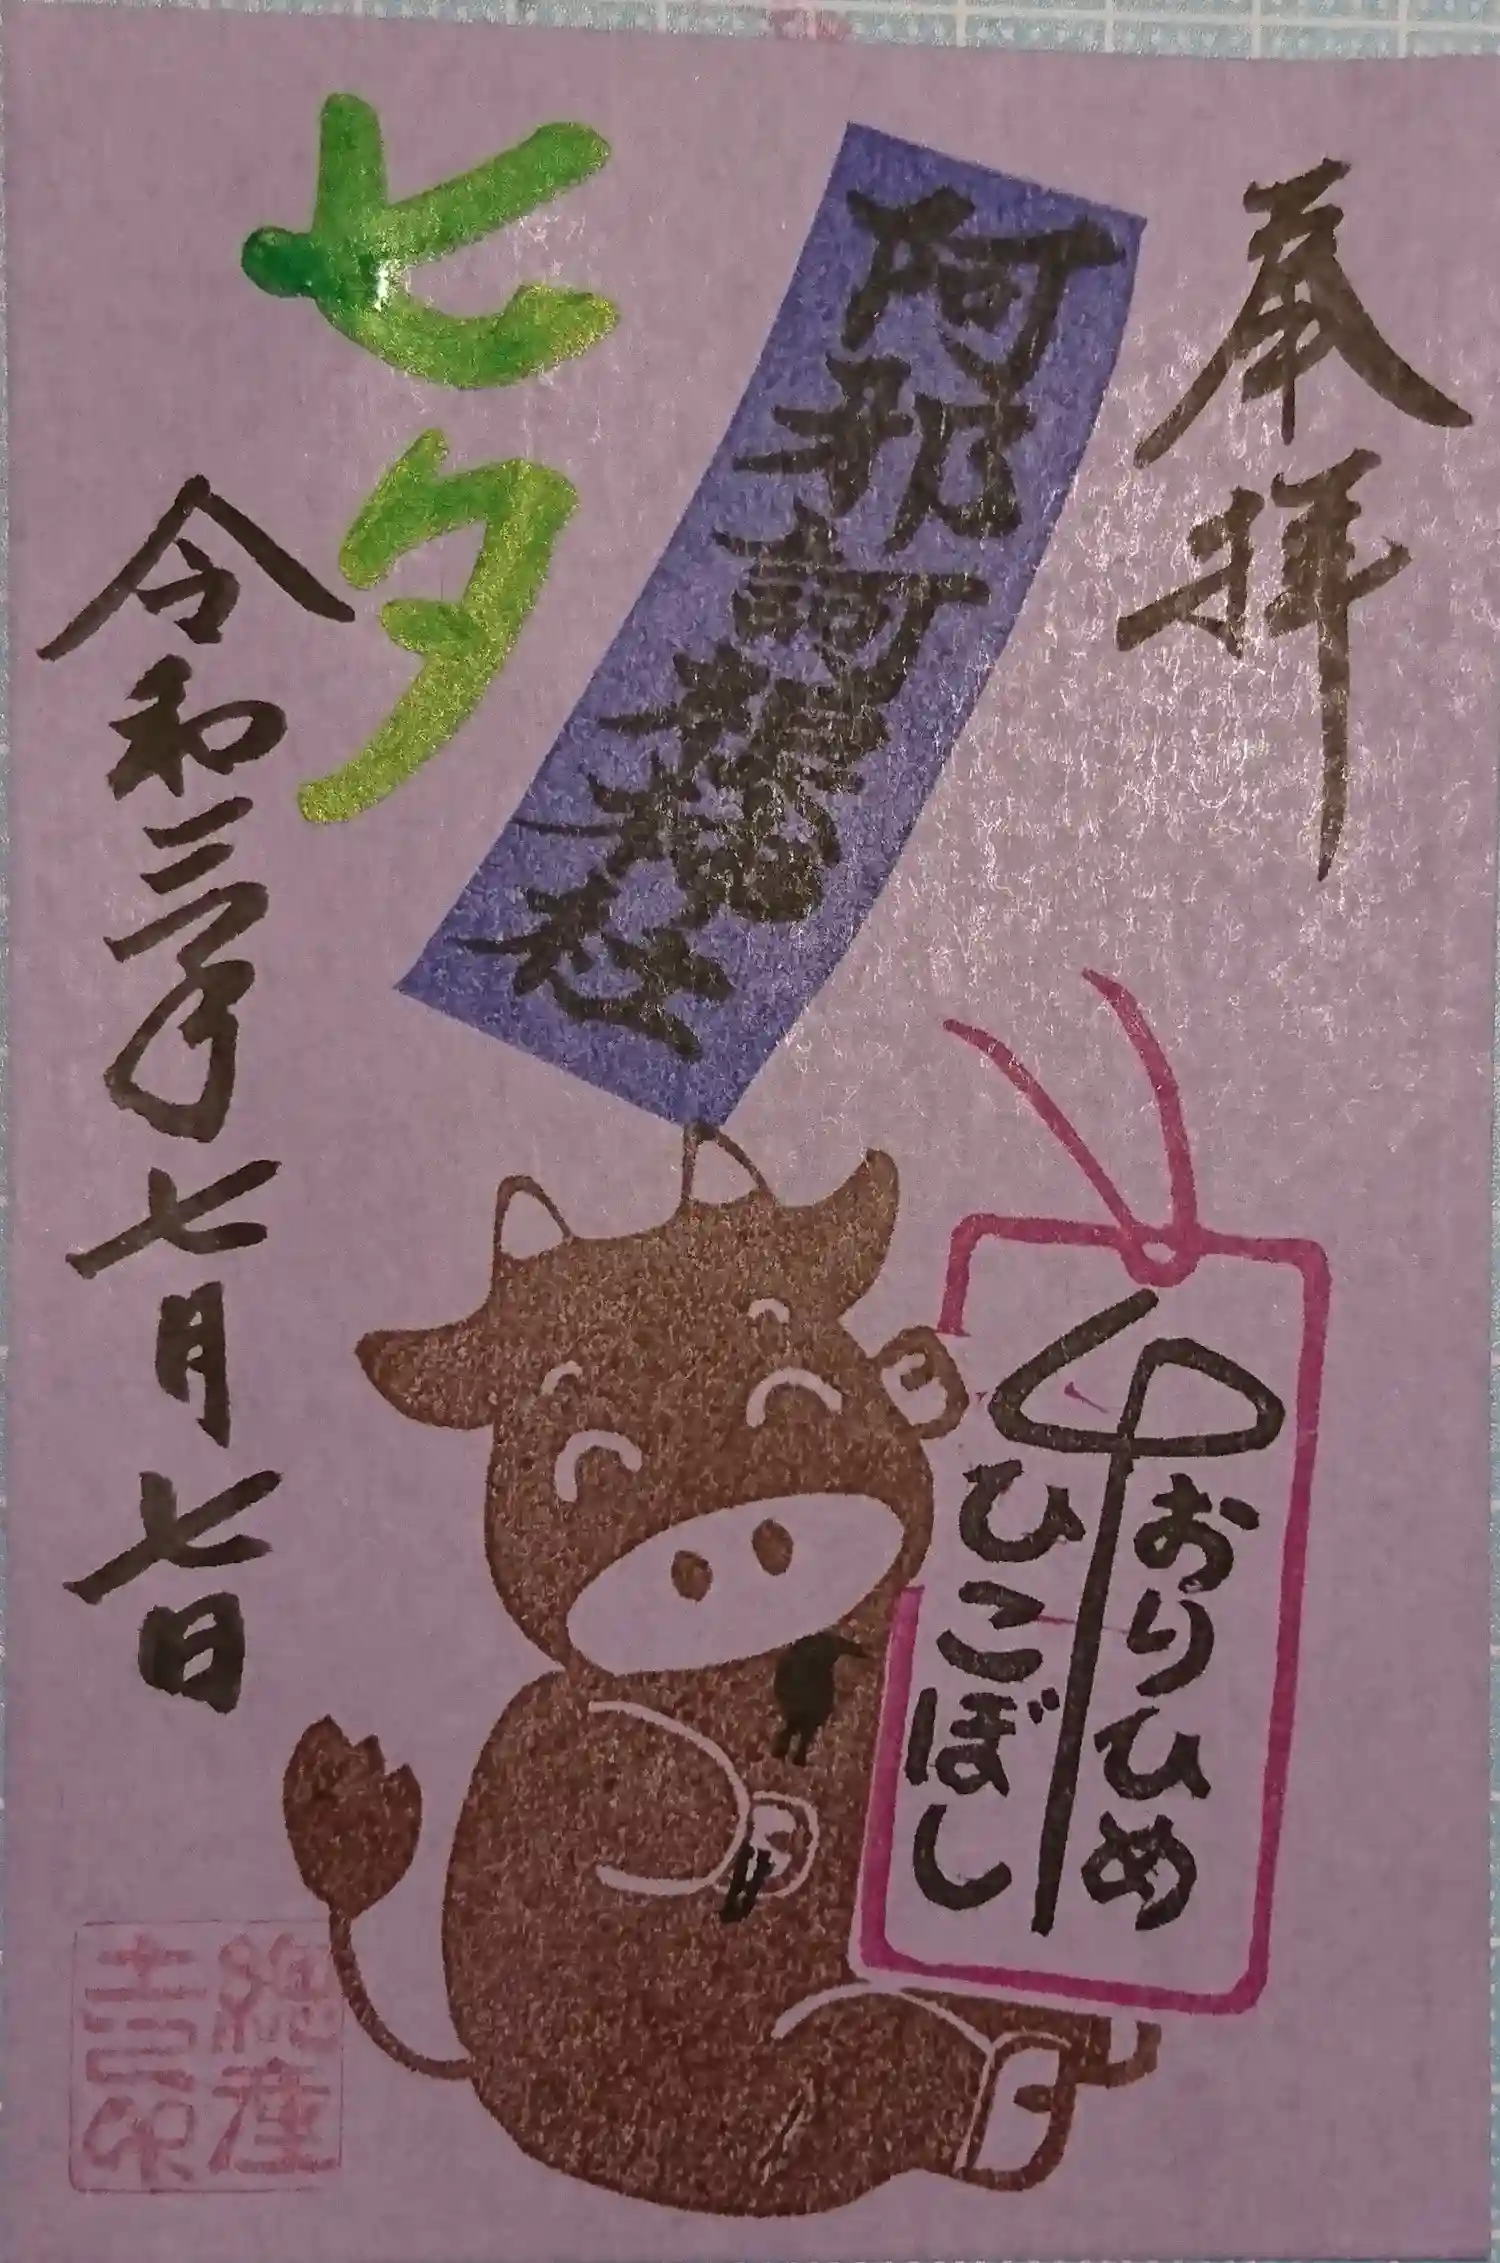 奉拝
阿邪訶根神社
七夕
令和三年七月七日
おりひめ
ひこぼし